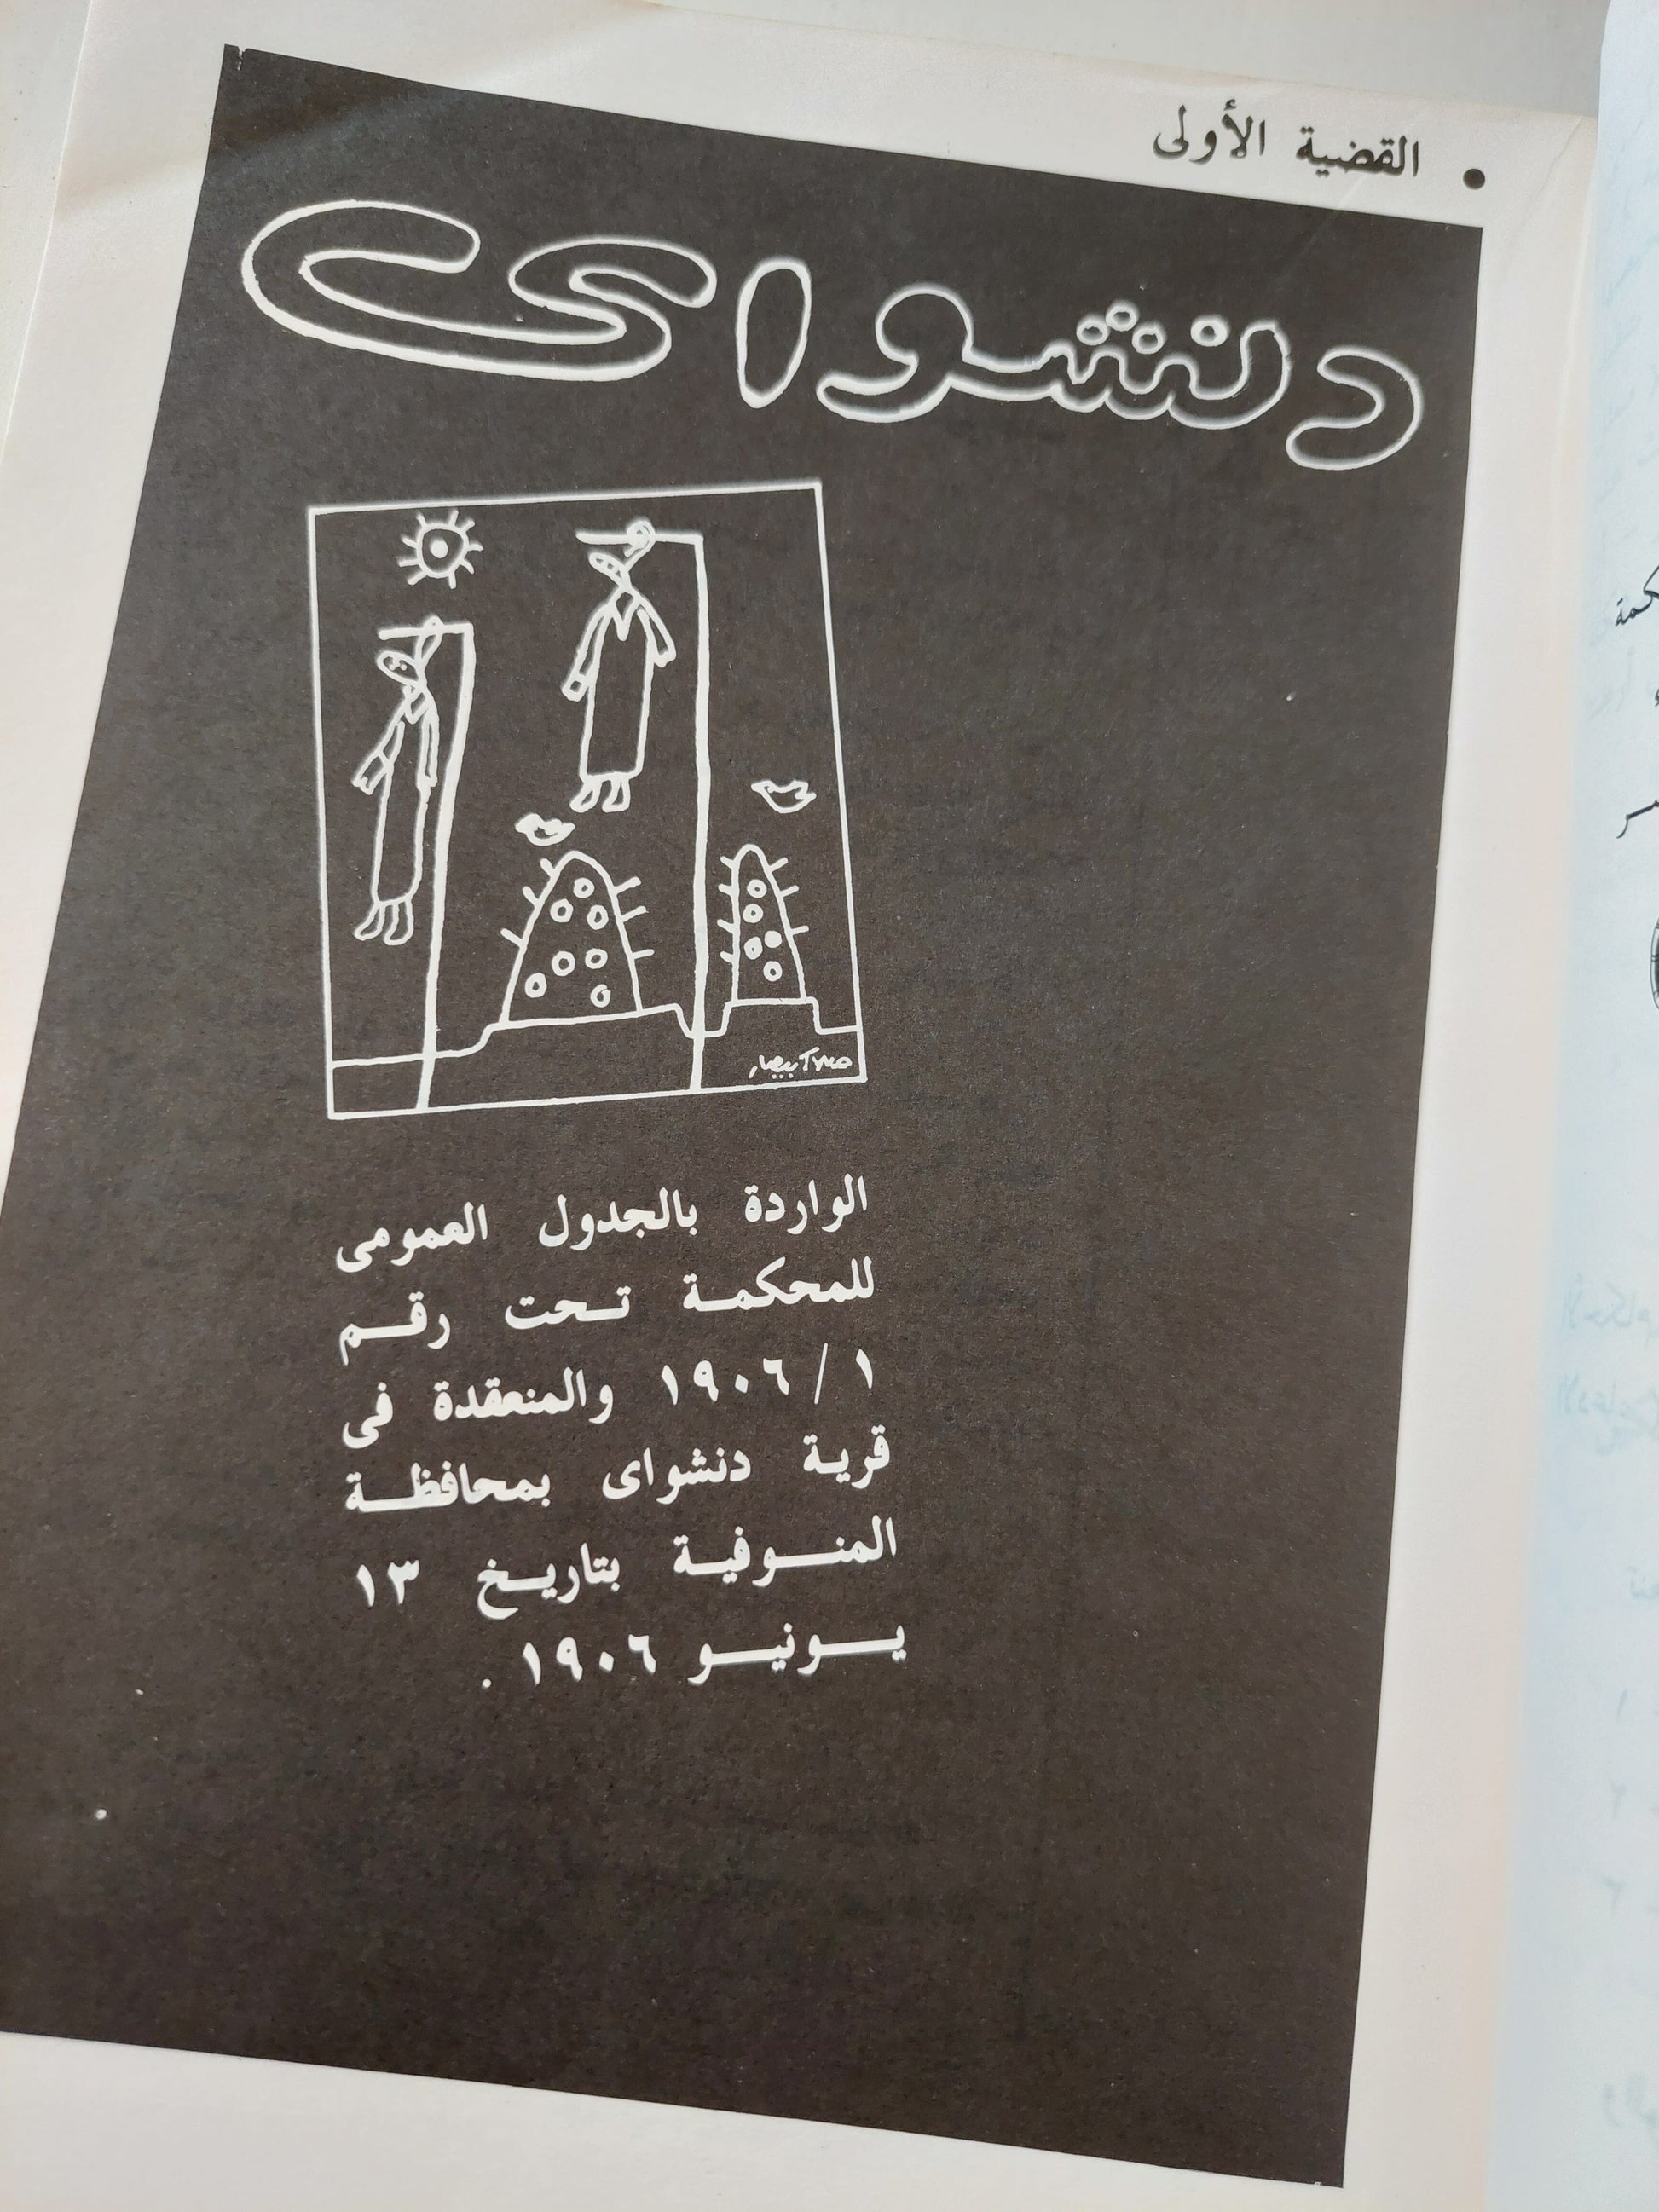 • القضية الأولى
دنشواى
الواردة بالجدول العمومى
للمحكمة تحت رقم
١ / ١٩٠٦ والمنعقدة فى
قرية دنشواى بمحافظة
المنوفية بتاريخ ١٣
يونيو ١٩٠٦ .